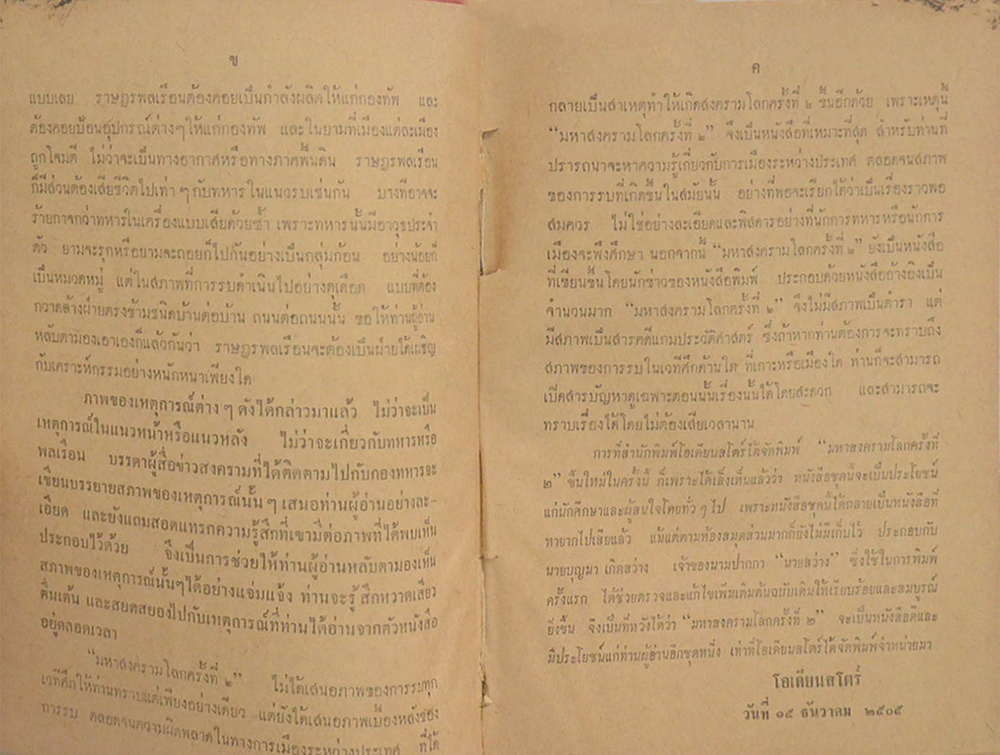 ข
แบบเลย ราษฎรพลเรือนต้องคอยเป็นกำลังผลิตให้แก่กองทัพ และ
ต้องคอยป้อนอุปกรณ์ต่างๆให้แก่กองทัพ และในยามที่เมืองแต่ละเมือง
ถูกโจมตี ไม่ว่าจะเป็นทางอากาศหรือทางภาคพื้นดิน ราษฎรพลเรือน
ก็มีส่วนต้องเสียชีวิตไปเท่าๆกับทหารในแนวรบเช่นกัน บางทีอาจจะ
ร้ายกาจกว่าทหารในเครื่องแบบเสียด้วยซ้ำ เพราะทหารนั้นมีอาวุธประจำ
ตัว ยามจะรุกหรือยามจะถอยก็ไปกันอย่างเป็นกลุ่มก้อน อย่างน้อยก็
เป็นหมวดหมู่ แต่ในสภาพที่การรบดำเนินไปอย่างดุเดือด แบบที่ต้อง
กวาดล้างฝ่ายตรงข้ามชนิดบ้านต่อบ้าน ถนนต่อถนนนั้น ขอให้ท่านผู้อ่าน
หลับตามองเอาเองก็แล้วกันว่า ราษฎรพลเรือนจะต้องเป็นฝ่ายได้เผชิญ
กับเคราะห์กรรมอย่างหนักหนาเพียงใด
ภาพของเหตุการณ์ต่างๆดังได้กล่าวมาแล้ว ไม่ว่าจะเป็น
เหตุการณ์ในแนวหน้าหรือแนวหลัง ไม่ว่าจะเกี่ยวกับทหารหรือ
พลเรือน บรรดาผู้สื่อข่าวสงครามที่ได้ติดตามไปกับกองทหารจะ
เขียนบรรยายสภาพของเหตุการณ์นั้นๆเสนอท่านผู้อ่านอย่างละ-
เอียด และยังแถมสอดแทรกความรู้สึกที่เขามีต่อภาพที่ได้พบเห็น
ประกอบไว้ด้วย จึงเป็นการช่วยให้ท่านผู้อ่านหลับตามองเห็น
สภาพของเหตุการณ์นั้นๆได้อย่างแจ่มแจ้ง ท่านจะรู้สึกหวาดเสียว
ตื่นเต้น และสยดสยองไปกับเหตุการณ์ที่ท่านได้อ่านจากตัวหนังสือ
อยู่ตลอดเวลา
"มหาสงครามโลกครั้งที่ ๒" ไม่ได้เสนอภาพของการรบทุก
เวทีศึกให้ท่านทราบแต่เพียงอย่างเดียว แต่ยังได้เสนอภาพเบื้องหลังของ
การรบ ตลอดจนความผิดพลาดในทางการเมืองระหว่างประเทศ ที่ได้
ค
กลายเป็นสาเหตุทำให้เกิดสงครามโลกครั้งที่ ๒ ขึ้นอีกด้วย เพราะเหตุนี้
"มหาสงครามโลกครั้งที่ ๒" จึงเป็นหนังสือที่เหมาะที่สุด สำหรับท่านที่
ปรารถนาจะหาความรู้เกี่ยวกับการเมืองระหว่างประเทศ ตลอดจนสภาพ
ของการรบที่เกิดขึ้นในสมัยนั้น อย่างที่พอจะเรียกได้ว่าเป็นเรื่องราวพอ
สมควร ไม่ใช่อย่างละเอียดและพิสดารอย่างที่นักการทหารหรือนักการ
เมืองจะพึงศึกษา นอกจากนี้ "มหาสงครามโลกครั้งที่ ๒" ยังเป็นหนังสือ
ที่เขียนขึ้นโดยนักข่าวของหนังสือพิมพ์ ประกอบด้วยหนังสืออ้างอิงเป็น
จำนวนมาก "มหาสงครามโลกครั้งที่ ๒" จึงไม่มีสภาพเป็นตำรา แต่
มีสภาพเป็นสารคดีแกมประวัติศาสตร์ ซึ่งถ้าหากท่านต้องการจะทราบถึง
สภาพของการรบในเวทีศึกด้านใด ที่เกาะหรือเมืองใด ท่านก็จะสามารถ
เปิดสารบัญหาดูเฉพาะตอนนั้นเรื่องนั้นได้โดยสะดวก และสามารถจะ
ทราบเรื่องได้โดยไม่ต้องเสียเวลานาน
การที่สำนักพิมพ์โอเดียนสโตร์ได้จัดพิมพ์ "มหาสงครามโลกครั้งที่
๒" ขึ้นใหม่ในครั้งนี้ ก็เพราะได้เล็งเห็นแล้วว่า หนังสือชุดนี้จะเป็นประโยชน์
แก่นักศึกษาและผู้สนใจโดยทั่วๆไป เพราะหนังสือชุดนี้ได้กลายเป็นหนังสือที่
หายากไปเสียแล้ว แม้แต่ตามห้องสมุดส่วนมากก็ยังไม่มีเก็บไว้ ประกอบกับ
นายบุญมา เกิดสว่าง เจ้าของนามปากกา "นายสว่าง" ซึ่งใช้ในการพิมพ์
ครั้งแรก ได้ช่วยตรวจและแก้ไขเพิ่มเติมต้นฉบับเดิมให้เรียบร้อยและสมบูรณ์
ยิ่งขึ้น จึงเป็นที่หวังได้ว่า "มหาสงครามโลกครั้งที่ ๒" จะเป็นหนังสือดีและ
มีประโยชน์แก่ท่านผู้อ่านอีกชุดหนึ่ง เท่าที่โอเดียนสโตร์ได้จัดพิมพ์จำหน่ายมา
โอเดียนสโตร์
วันที่ ๑๕ ธันวาคม ๒๕๐๕